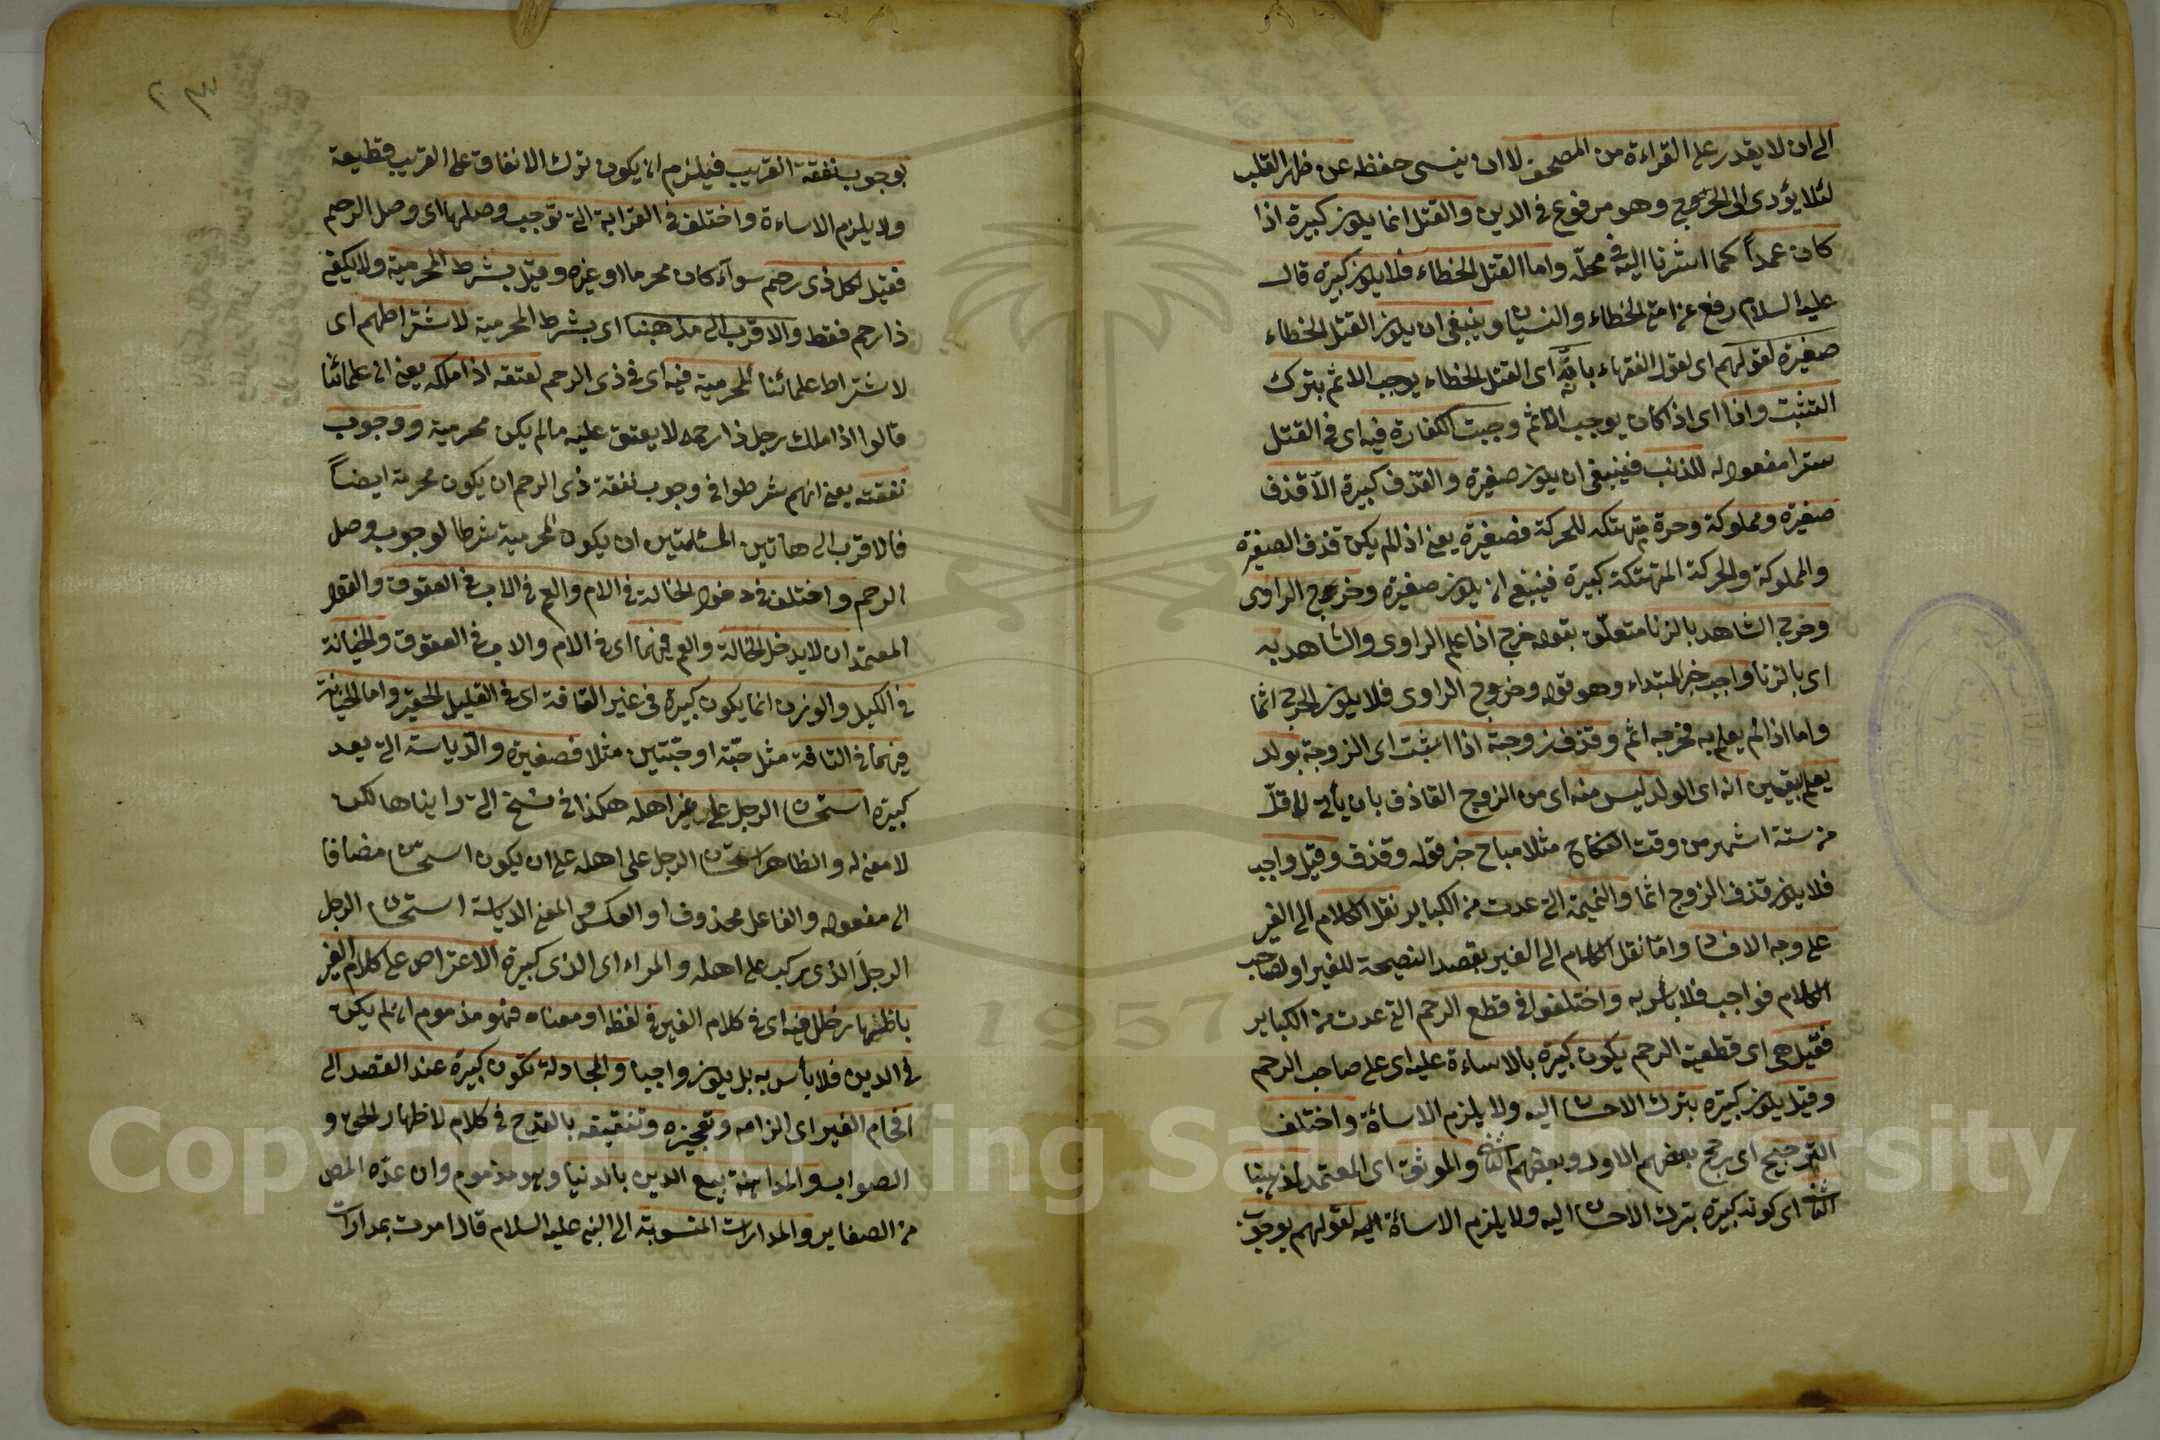 الى ان لا يقدر على القراءة من المصحف لا ان ينسى حفظه عن ظهر القلب
لئلا يؤدى الى الحرج وهو مرفوع فى الدين والقتل انما يكون كبيرة اذا
كان عمداً كما اشرنا اليه فى محلّه واما القتل الخطاء فلا يكون كبيرة قال
عليه السلام رفع عن امتى الخطاء والنسيان وينبغى ان يكون القتل الخطاء
صغيرة لقولهم اى لقول الفقهاء بانه اى القتل الخطاء يوجب الاثم بترك
التثبت واذا اى اذ كان يوجب الاثم وجبت الكفارة فيه اى فى القتل
سترا مفعول له للذنب فينبغى ان يكون صغيرة والقذف كبيرة الا قذف
صغيرة ومملوكة وحرة متهتكة للحركة فصغيرة يعنى اذا لم يكن قذف الصغيرة
والمملوكة والحركة المتهتكة كبيرة فينبغى ان يكون صغيرة وخروج الراوى
وخرج الشاهد بالزنا متعلّق بقوله خرج اذا علم الراوى والشاهد به
اى بالزنا واجب خبر المبتداء وهو قوله وخروج الراوى فلا يكون الجرح اثما
واما اذا لم يعلم به فخرجه اثم وقذف زوجة اذا اتت اى الزوجة بولد
يعلم بيقين انه اى الولد ليس منه اى من الزوج القاذف بان يأتى لاقلّ
من ستة اشهر من وقت النكاح مثلا مباح خبر قوله وقذف وقيل واجب
فلا يكون قذف الزوج اثما والنميمة التى عدت من الكباير نقل الكلام الى الغير
على وجه الافساد واما نقل الكلام الى الغير بقصد النصيحة للغير او لصاحب
الكلام فواجب فلا بأس به واختلفوا فى قطع الرحم التى عدت من الكباير
فقيل هى اى قطعية الرحم يكون كبيرة بالاساءة عليه اى على صاحب الرحم
وقيل يكون كبيرة بترك الاحسان اليه ولا يلزم الاساءة واختلف
الترجيح اى رجح بعضهم الاول وبعضهم الثانى والموثوق اى المعتمد لمذهبنا
الثانى اى كونه كبيرة بترك الاحسان اليه ولا يلزم الاساءة اليه لقولهم بوجوب
بوجوب نفقة القريب فيلزم ان يكون ترك الانفاق على القريب قطيعة
ولا يلزم الاساءة واختلف فى القرابة التى توجب وصلها اى وصل الرحم
فقيل لكل ذى رحم سوآء كان محرما او غيره وقيل بشرط المحرمية ولا يكفى
ذا رحم فقط والاقرب الى مذهبنا اى بشرط المحرمية لاشتراطهم اى
لاشتراط علمائنا المحرمية فيه اى فى ذى الرحم لعتقه اذا ملكه يعنى ان علمائنا
قالوا اذا ملك رجل ذا رحمه لا يعتق عليه ما لم يكن محرمية ووجوب
نفقته يعنى انهم شرطوا فى وجوب نفقة ذى الرحم ان يكون محرمة ايضاً
فالاقرب الى هاتين المسئلتين ان يكون المحرمية شرطا لوجوب وصل
الرحم واختلف فى دخول الخالة فى الام والعم فى الاب فى العقوق والقول
المعتمد ان لا يدخل الخالة والعم فيهما اى فى الام والاب فى العقوق والخيانة
فى الكيل والوزن انما يكون كبيرة فى غير التافه اى فى القليل الحقير واما الخيانة
فيهما فى التافه مثل حبّة او حبّتين مثلا فصغيرة والدّياسة التى يعد
كبيرة استحسان الرجل على غير اهله هكذا فى نسخ التى رايناها لكن
لا معنى له والظاهر استحسان الرجل على اهله على ان يكون استحسان مضافا
الى مفعوله والفاعل محذوف او العكس والمعنى الدياسة استحسان الرجل
الرجلَ الذى يركب على اهله والمراء اى الذى كبيرة الاعتراض على كلام الغير
باظهار خلل فيه اى فى كلام الغير فى لفظه او معناه فهو مذموم ان لم يكن
فى الدين فلا بأس به بل يكون واجبا والمجادلة تكون كبيرة عند القصد الى
افحام الغير اى الزامه وتعجيزه وتنقيصه بالقدح فى كلام لاظهار الحق و
الصواب والمداهنة بيع الدين بالدنيا وهو مذموم وان عدّه المص
من الصغاير والمدارات المنسوبة الى النبى عليه السلام قال امرت بمدارات
Copyright © King Saud University
1957